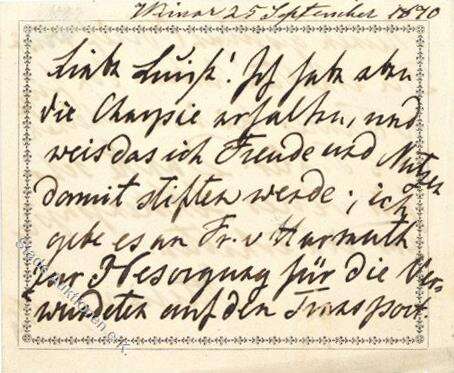 25 September 1870
Liebe Luise! Ich habe eben
die Charpie erhalten, und
weis das ich Freude und Nutzen
damit stiften werde; ich
gebe es an Fr. v
zur für die Ver-
wundeten auf den Transport.